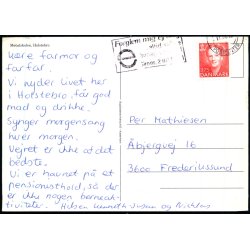 Kære farmor og
farfar.
Vi nyder livet her
i Holstebro, med god
mad og drikke.
Synger morgensang
hver morgen.
Vejret er ikke at det
bedste.
Vi er havnet på et
pensionisthold, så der
er ikke nogen børneak-
tiviteter. Hilsen Kenneth
og Nicklas
DANMARK
Per Mathiesen
Åbjergvej 16
3600 Frederikssund